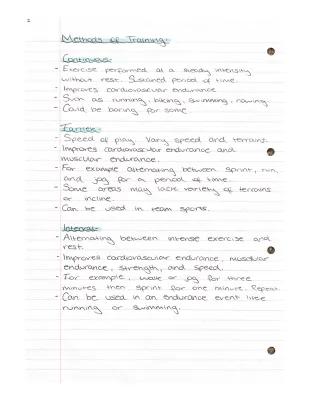 Methods of Training:
Continuous:
- Exercise performed at a steady intensity
without rest. Sustained period of time.
- Improves cardiovascular endurance
- Such as running, biking, swimming, rowing
- Could be boring for some.
Fartlek:
- Speed of play. Vary speed and terrain.
- Improves cardiovascular endurance and
muscular endurance.
- For example alternating between sprint, run,
and jog for a period of time.
- Some areas may lack variety of terrains
or incline.
- Can be used in team sports.
Interval:
- Alternating between intense exercise and
rest.
- Improves cardiovascular endurance, muscular
endurance, strength, and speed.
- For example, walk or jog for three
minutes then sprint for one minute. Repeat.
- Can be used in an endurance event like
running or swimming.